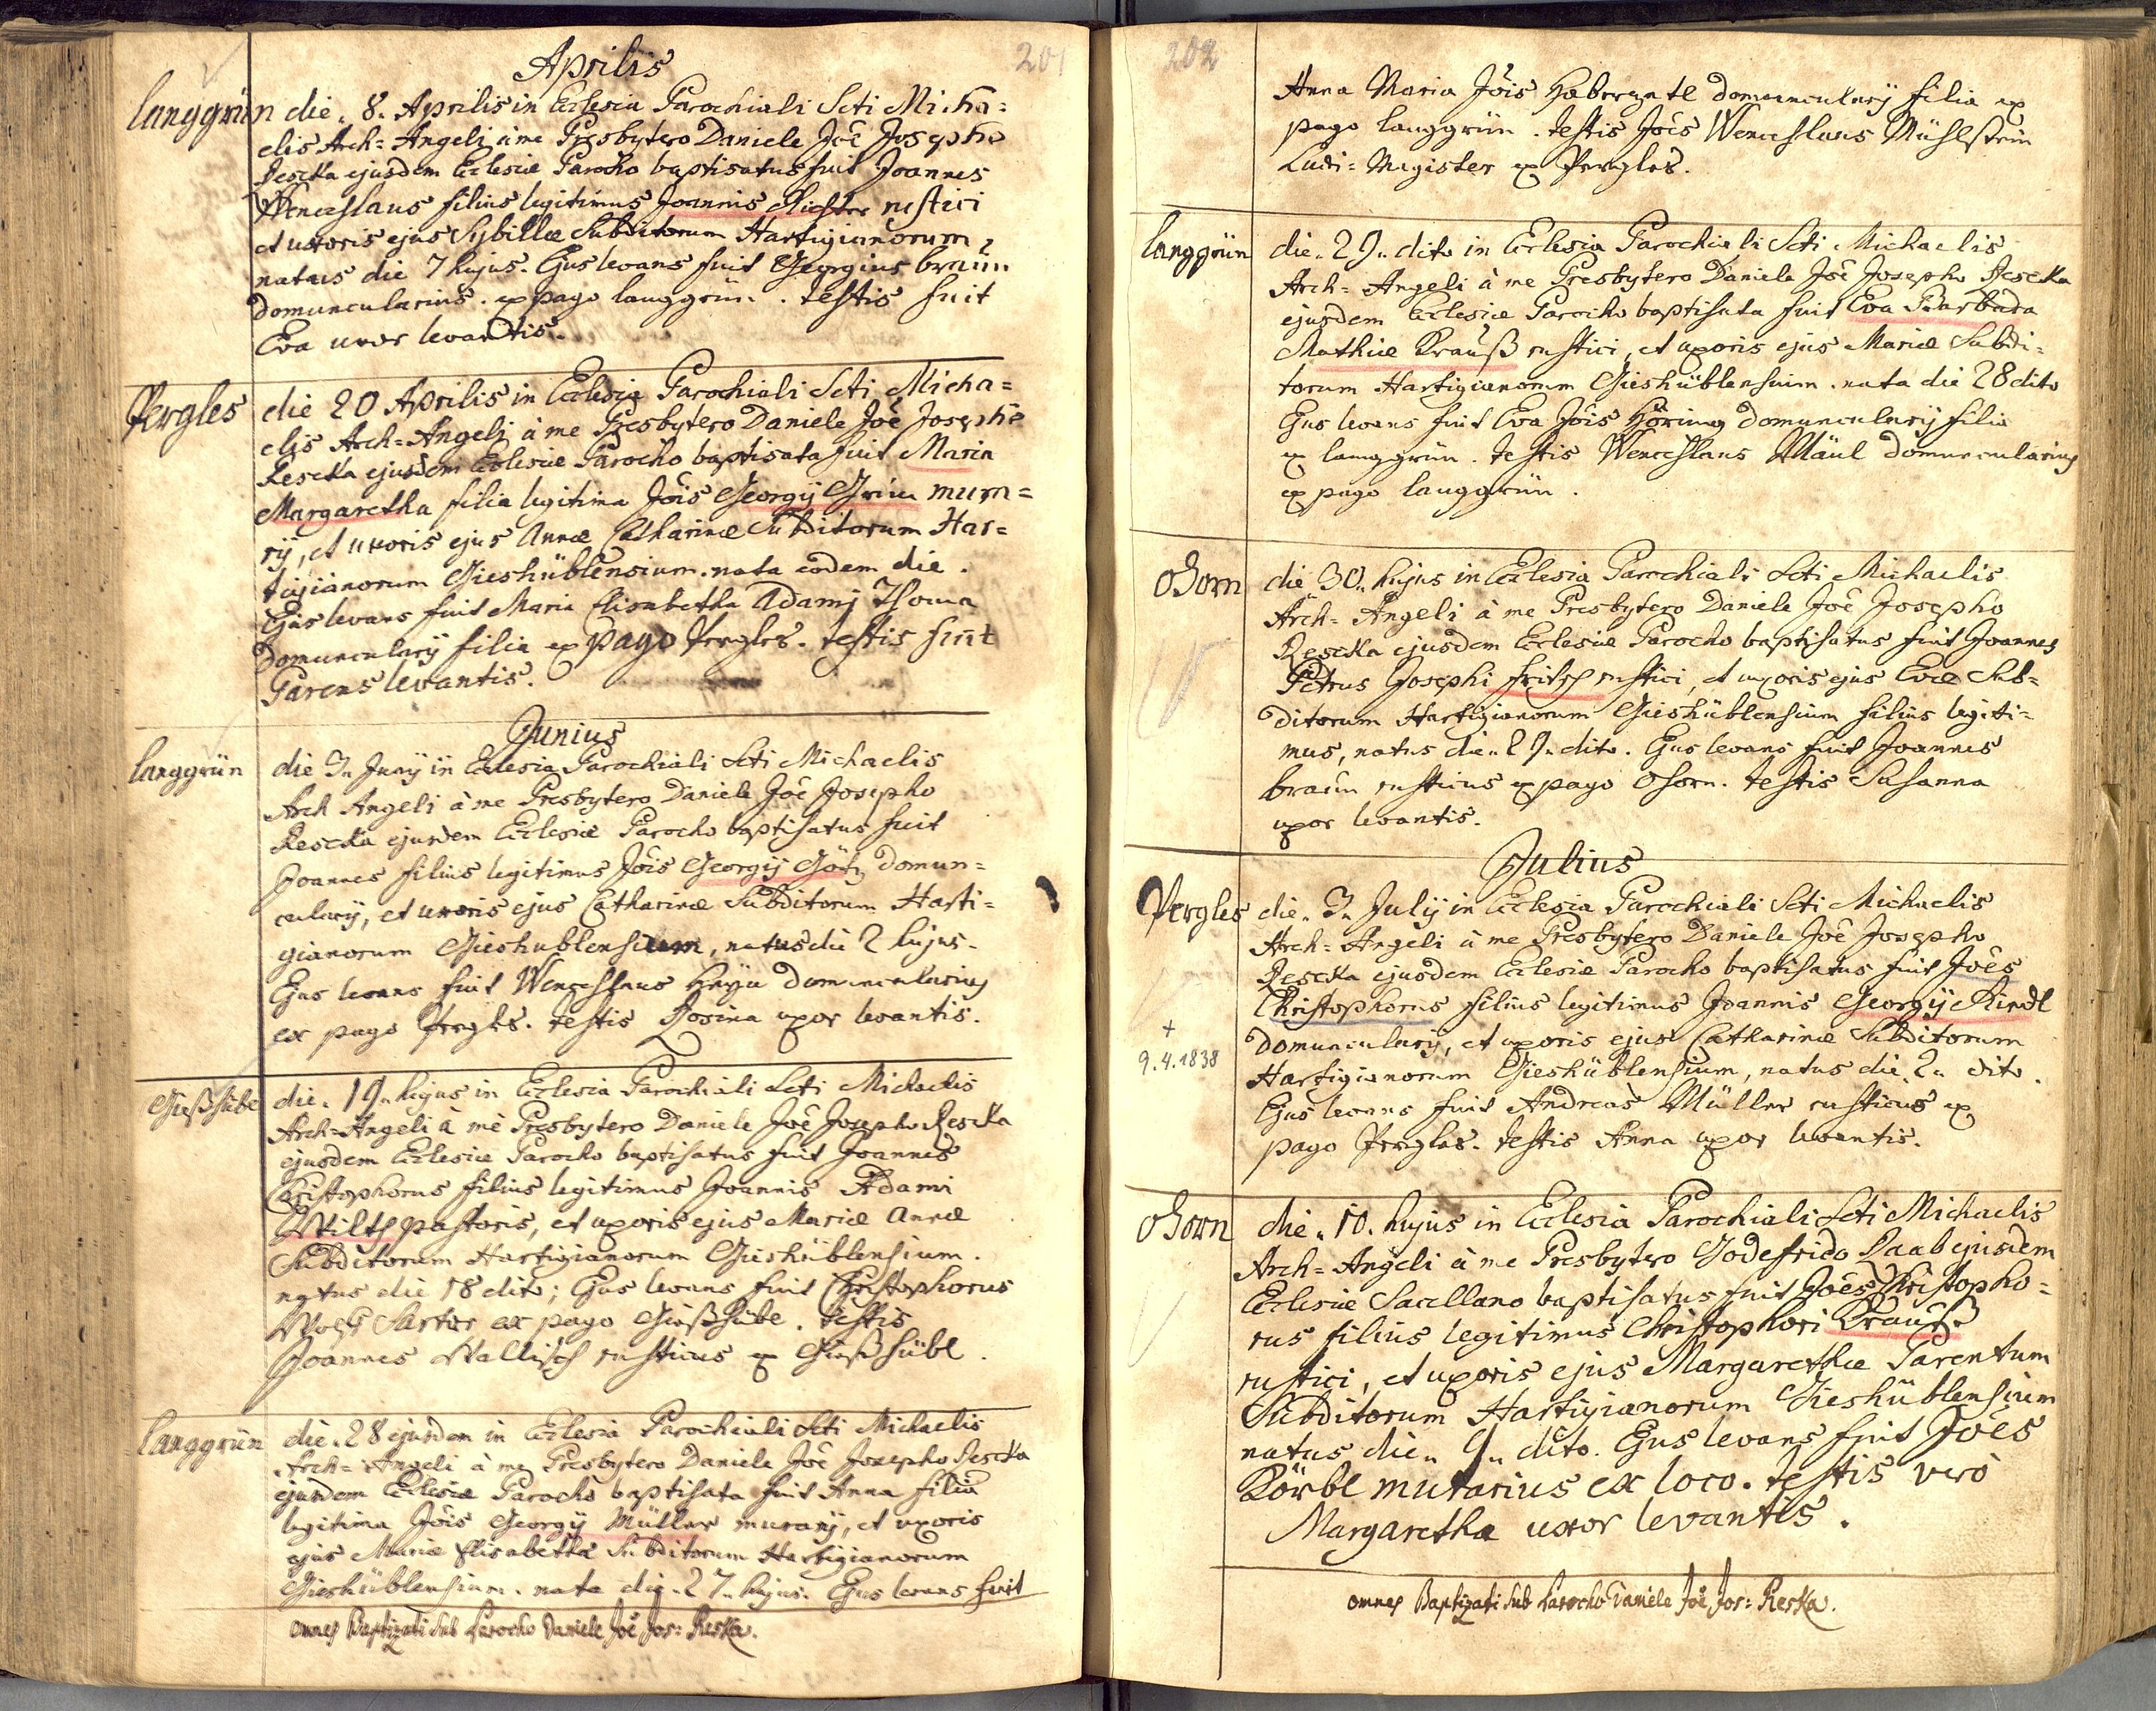 Aprilis
201
langgrün
die. 8. Aprilis in Ecclesia Parochiali Scti Micha=
elis Arch=Angeli à me Presbytero Daniele Joê Josepho
Rescka ejusdem Ecclesiæ Parocho baptisatus fuit Joannes
Wenceslaus filius legitimus Joannis Richter rustici
et uxoris ejus Sybillæ Subditorum Hartigianorum,
natus die 7 hujus. Ejus levans fuit Georgius braun
domuncularius. ex pago langgrün. testis fuit
Eva uxor levantis.
Pergles
die 20 Aprilis in Ecclesia Parochiali Scti Micha=
elis Arch=Angeli à me Presbytero Daniele Joê Josepho
Rescka ejusdem Ecclesiæ Parocho baptisata fuit Maria
Margaretha filia legitima Jôis Georgÿ Grim mura=
rÿ, et uxoris ejus Annæ Catharinæ Subditorum Har=
tigianorum Gieshüblensium. nata eodem die.
Ejus levans fuit Maria Elisabetha Adami Thoma
Domunculary filia ex pago Pergles. testis fuit
Parens levantis.
Junius
langgrün
die 3. Junÿ in Ecclesia Parochiali Scti Michaelis
Arch Angeli à me Presbytero Daniele Joê Josepho
Rescka ejusdem Ecclesiæ Parocho baptisatus fuit
Joannes filius legitimus Jôis Georgÿ Götz domun=
cularÿ, et uxoris ejus Catharinæ Subditorum Harti=
gianorum Gieshublensium, natus die 2 hujus.
Ejus levans fuit Wenceslaus domuncularius
ex pago Pergles. testis Rosina uxor levantis.
Gießhübe
die. 19. hujus in Ecclesia Parochiali Scti Michaelis
Arch=Angeli à me Presbytero Daniele Joê Josepho Rescka
ejusdem Ecclesiæ Parocho baptisatus fuit Joannes
Christophorus filius legitimus Joannis Adami
Wiltsch pastoris, et uxoris ejus Mariæ Annæ
Subditorum Hartigianorum Gieshüblensium.
natus die 18 dito; Ejus levans fuit Christophorus
Sartor ex pago Gießhübe. testis
Joannes Wallisch rusticus ex Gießhübl.
langgrün
die. 28 ejusdem in Ecclesia Parochiali Scti Michaelis
Arch=Angeli à me Presbytero Daniele Joê Josepho Rescka
ejusdem Ecclesiæ Parocho baptisata fuit Anna filia
legitima Jôis Georgÿ Müller murarÿ, et uxoris
ejus Mariæ Elisabethæ Subditorum Hartigianorum
Gieshüblensium. nata die. 27. hujus. Ejus levans fuit
omnes Baptizati sub Parocho Daniele Joê Jos: Reska.
202
Anna Maria Jôis domuncularÿ filia ex
pago langgrün. testis Joês Wenceslaus Mühlstein
Ludi=Magister ex Pergles.
langgrün
die. 29. dito in Ecclesia Parochiali Scti Michaelis
Arch=Angeli à me Presbytero Daniele Joê Josepho Rescka
ejusdem Ecclesiæ Parocho baptisata fuit Eva Barbara
Mathiæ Krauß rustici, et uxoris ejus Mariæ Subdi=
torum Hartigianorum Gieshüblensium. nata die 28 dito
Ejus levans fuit Eva Jôis Höring domuncularÿ filia
ex langgrün. testis Wenceslaus Mäul domuncularius
ex pago langgrün.
ohorn
die 30. hujus in Ecclesia Parochiali Scti Michaelis
Arch=Angeli à me Presbytero Daniele Joê Josepho
Rescka ejusdem Ecclesiæ Parocho baptisatus fuit Joannes
Petrus Josephi Fritsch rustici, et uxoris ejus Evæ Sub=
ditorum Hartigianorum Gieshüblensium filius legiti=
mus, natus die. 29. dito. Ejus levans fuit Joannes
braun rusticus ex pago Ohorn. testis Susanna
uxor levantis.
Julius
Pergles
+
9.4.1838
die. 3. Julÿ in Ecclesia Parochiali Scti Michaelis
Arch=Angeli à me Presbytero Daniele Joê Josepho
Rescka ejusdem Ecclesiæ Parocho baptisatus fuit Joês
Christophorus filius legitimus Joannis Georgÿ Kindl
Domuncularÿ, et uxoris ejus Catharinæ Subditorum
Hartigianorum Gieshüblensium, natus die. 2. dito.
Ejus levans fuit Andreas Müller rusticus ex
pago Pergles. testis Anna uxor levantis.
ohorn
die. 10. hujus in Ecclesia Parochiali Scti Michaelis
Arch=Angeli à me Presbytero Godefrido Raab ejusdem
Ecclesiæ Sacellano baptisatus fuit Joês Christopho=
rus filius legitimus Christophori Krauß
rustici, et uxoris ejus Margarethæ Parentum
Subditorum Hartigianorum Gieshüblensium
natus die. 9. dito. Ejus levans fuit Joês
Körbl murarius ex loco. testis verò
Margaretha uxor levantis.
omnes Baptizati sub Parocho Daniele Joê Jos: Reska.